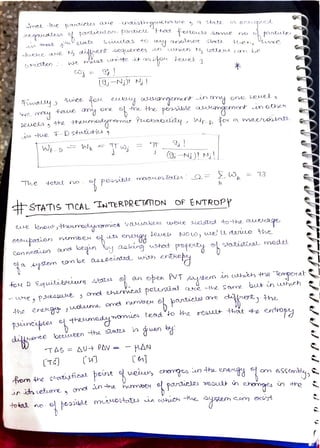 Since the particles are indistinguishable, a state is occupied
regardless of particular particle that
there are Nj different sequences in which Nj letters can be
written. We must write it as for level j
ωj = gj!
(gj-Nj)! Nj!
Finally, since for every arrangement in any one level,
we may have any one of the the possible arrangement in other
levels, the thermodynamic Probability, Wk, for a macrostate
in the F-D statistics,
= Wk = π ωj = π gj!
(gj-Nj)! Nj!
The total no. of possible macrostates: Ω = Σ Wk = 73
k
# STATISTICAL INTERPRETATION OF ENTROPY
We know, thermodynamics variables were related to the average
occupation number of its energy levels Now, we'll derive the
connection and begin by asking what property of statistical model
of a system can be associated with entropy
for 2 Equilibrium states of an open PVT system in which the Temperat
-ure, pressure, and chemical potential are the same but in which
the energy, volume and number of particles are different, the
principles of thermodynamics lead to the result that the entropy
difference between the states is given by:
TΔS = ΔU + PΔV - μΔN
from the statistical point of view, changes in the energy of an assembly,
in its volume, and in the number of particles result in changes in the
total no. of possible microstates in which the system can exist